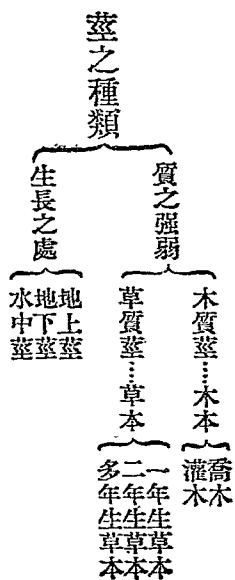 莖之種類
質之强弱
木質莖……木本
喬木
灌木
草質莖……草本
一年生草本
二年生草本
多年生草本
生長之處
地上莖
地下莖
水中莖